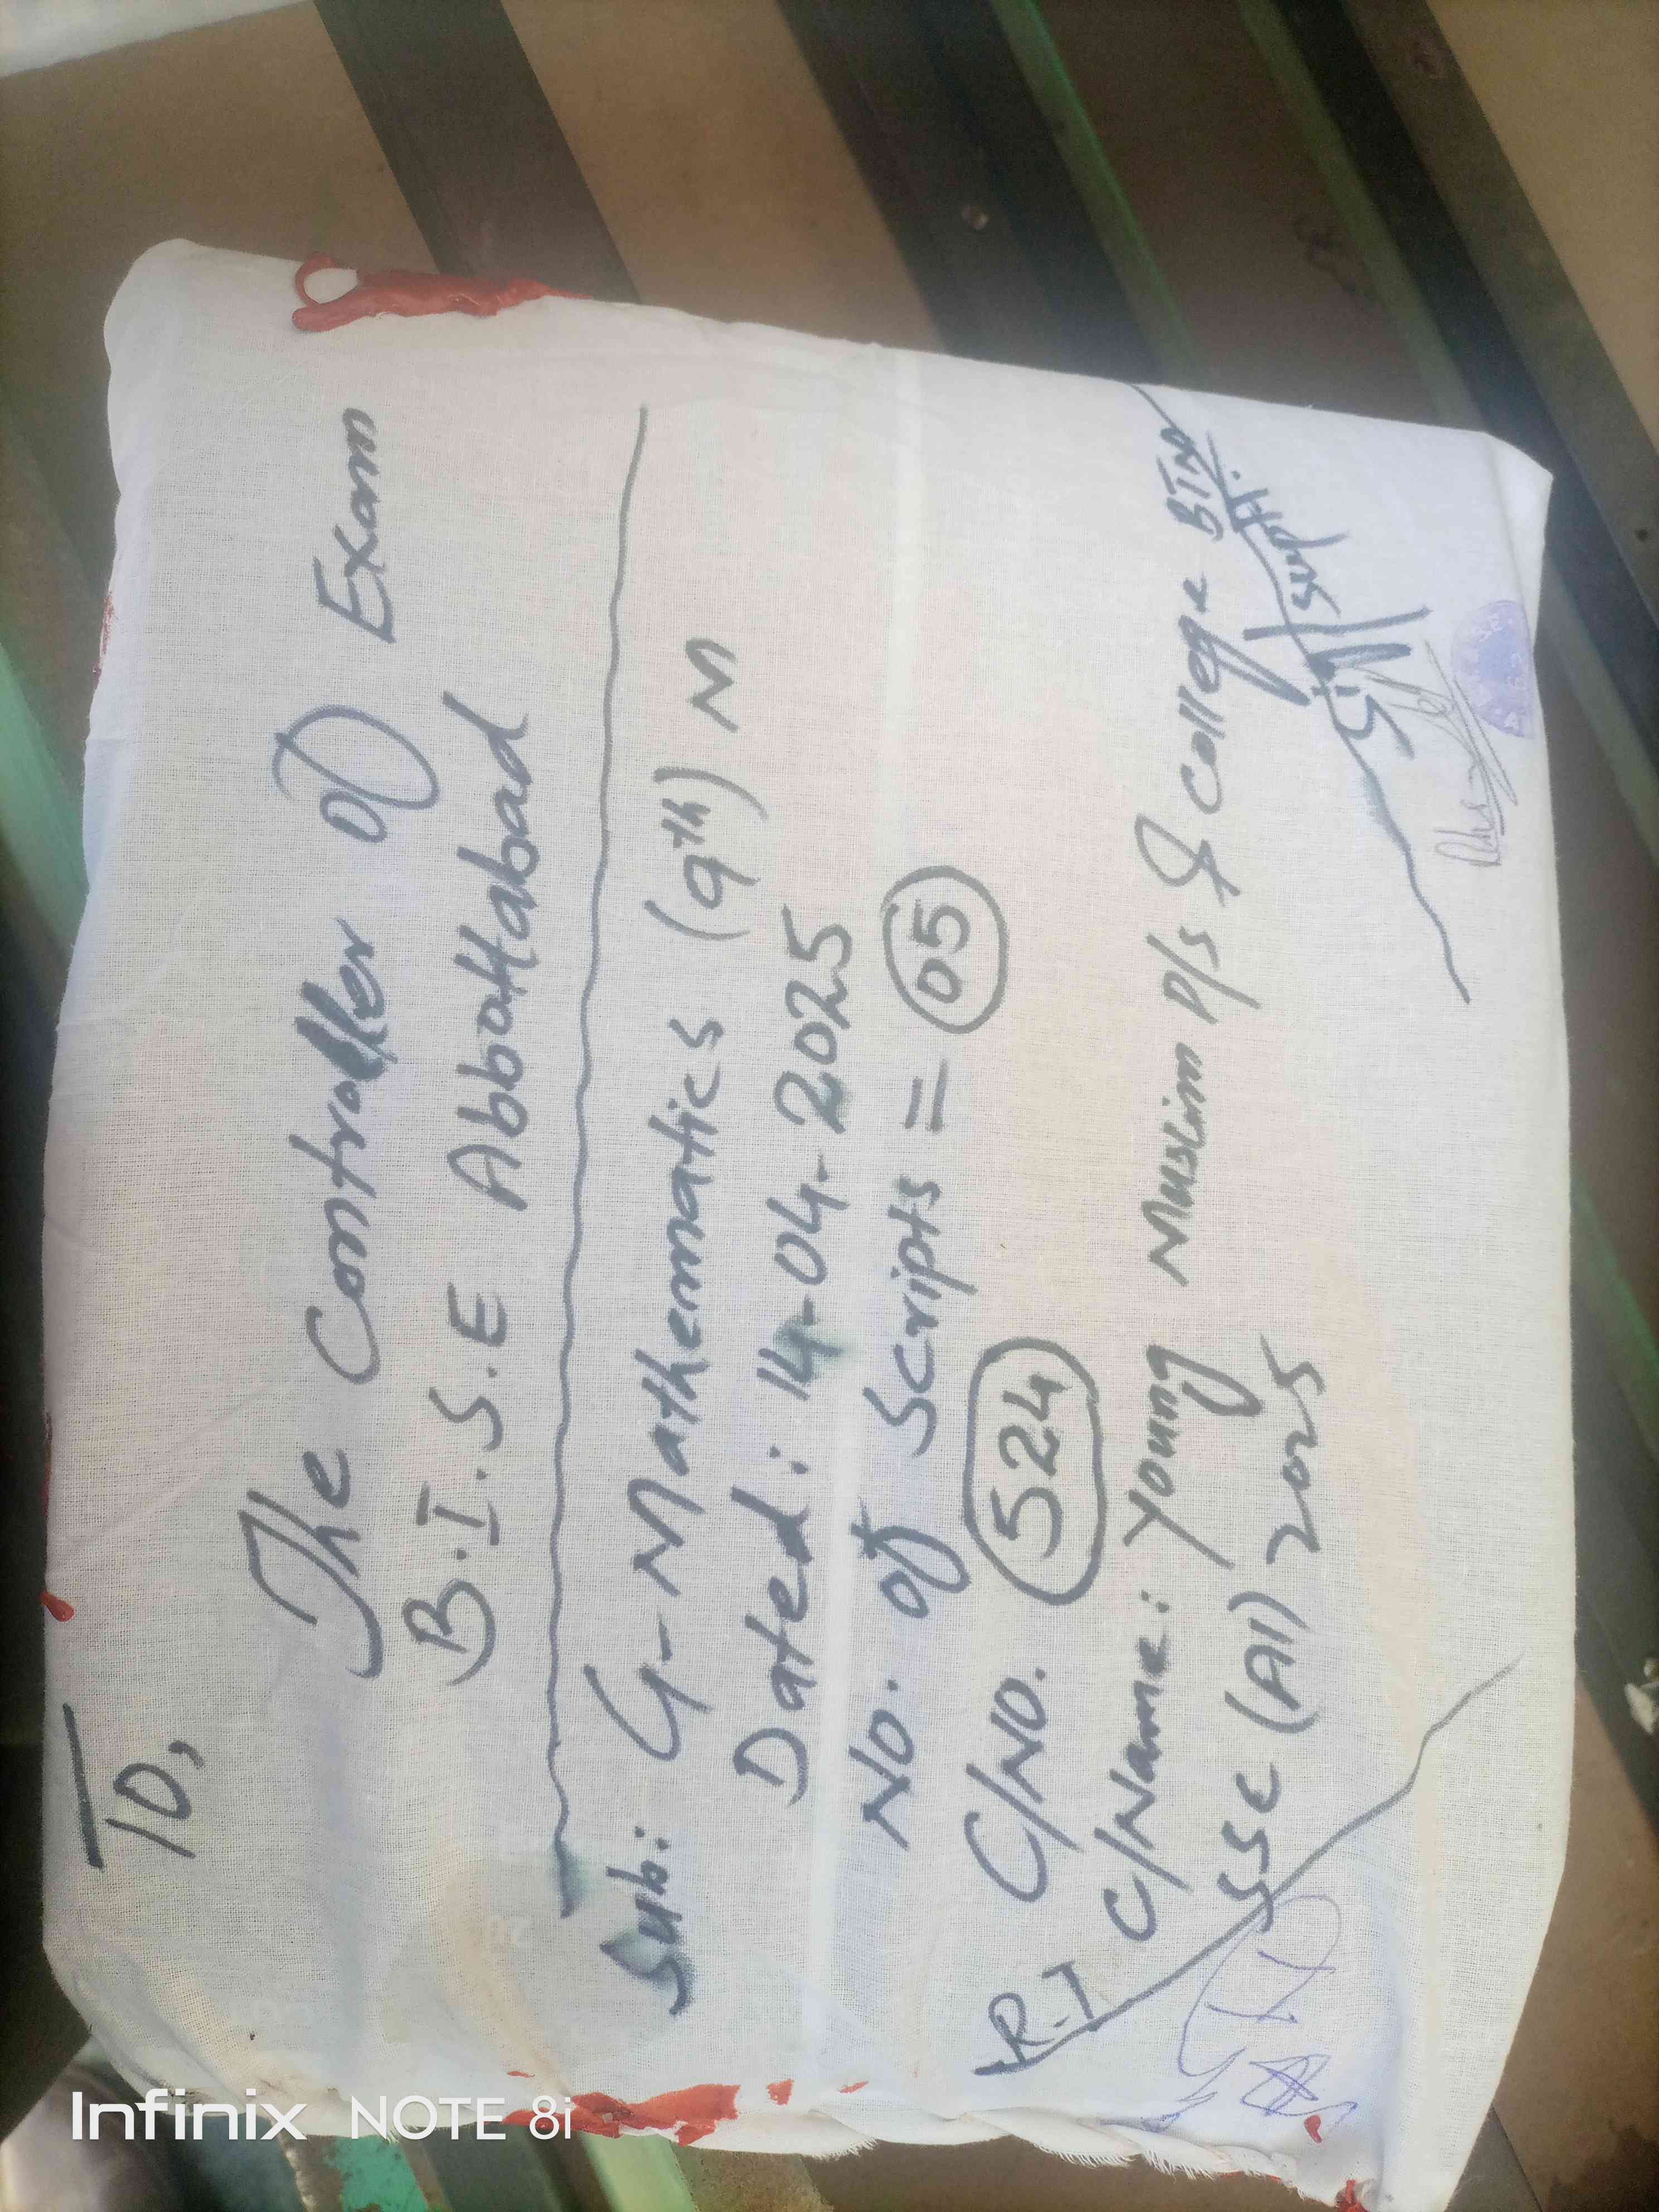 To,
The Controller of Exam
B.I.S.E Abbottabad
Sub: G-Mathematics (9th) N
Dated: 14-04-2025
No. of Scripts = 05
C/No. 524
C/Name: Young Muslim P/S & College BTM
SSC (A1) 2025
R.I
Sig/Supdt.
Infinix NOTE 8i